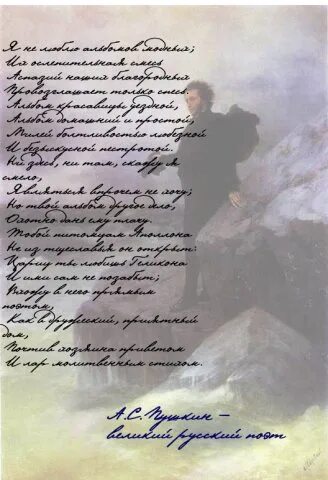 Я не люблю альбомов модных;
Их ослепительная смесь
Аспазий наших благородных
Провозглашает только спесь.
Альбом красавицы уездной,
Альбом домашний и простой,
Милей болтливостью любезной
И безыскусной пестротой.
Ни здесь, ни там, скажу я
смело,
Являться впрочем не хочу;
Но твой альбом другое дело,
Охотно дань ему плачу.
Тобой питомцам Аполлона
Не из тщеславья он открыт:
Царицы ты любишь Геликона
И ими сам не позабыт;
Вхожу в него прямым
поэтом,
Как в дружеский, приятный
дом,
Почтив хозяина приветом
И лар молитвенным стихом.
А.С. Пушкин –
великий русский поэт